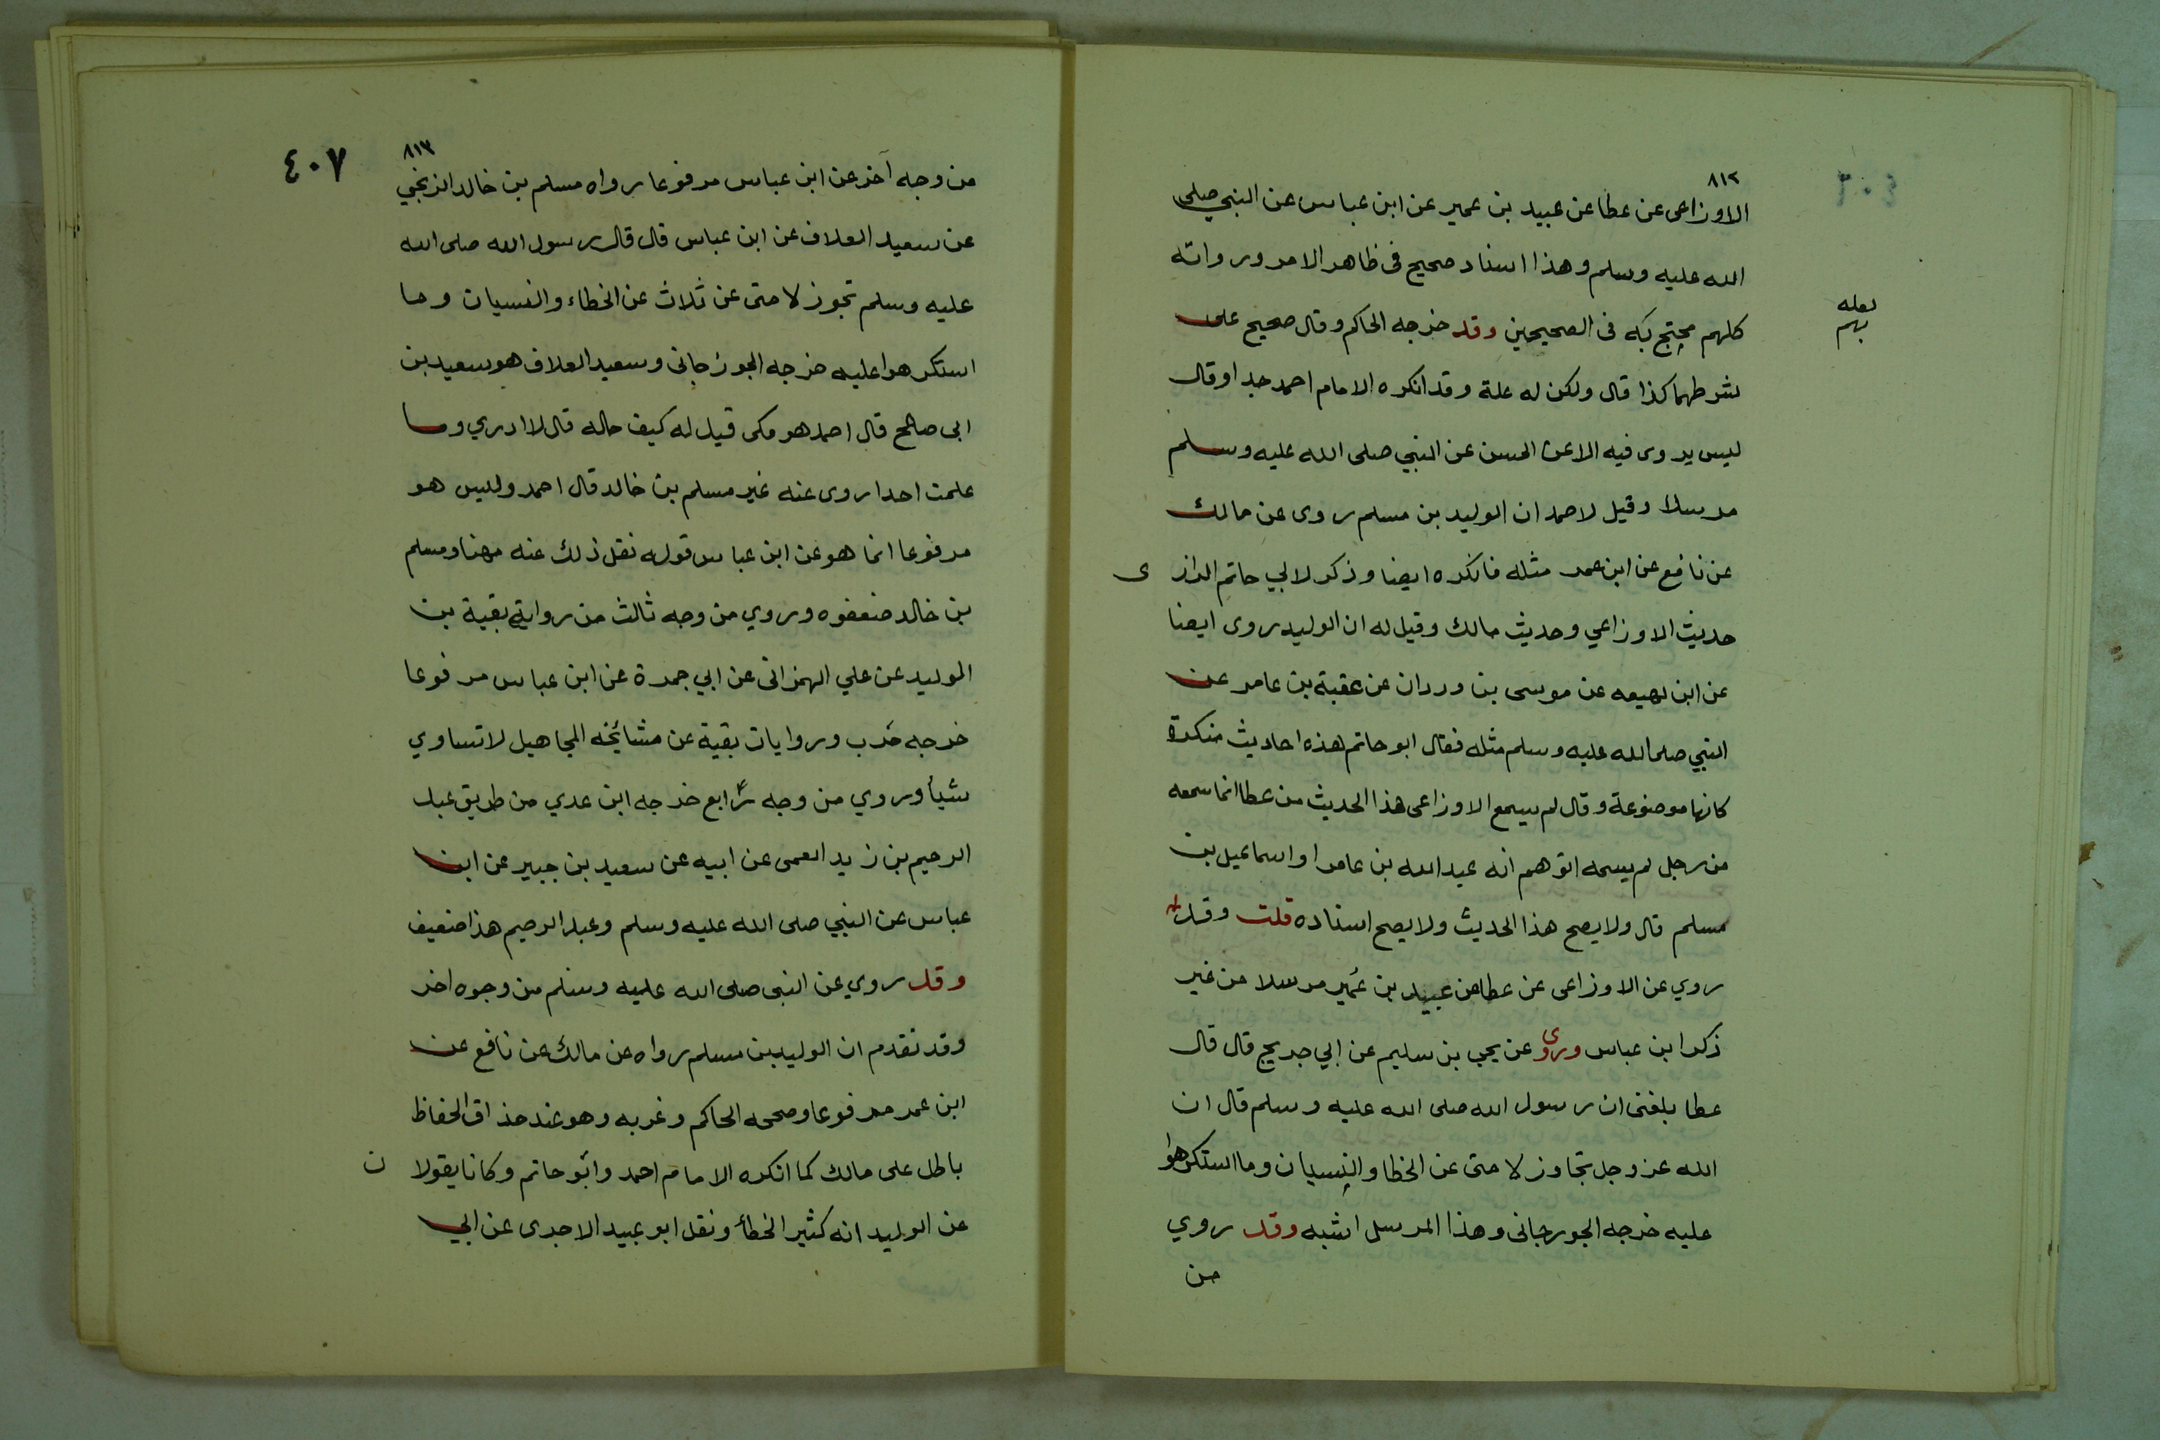 ٨١٢
الاوزاعى عن عطا عن عبيد بن عمير عن ابن عباس عن النبي صلى
الله عليه وسلم وهذا اسناد صحيح فى ظاهر الامر ورواته
كلهم محتج بكه فى الصحيحين وقد خرجه الحاكم وقال صحيح على
لعله
بهم
شرطهما كذا قال ولكن له علة وقد انكره الامام احمد جدا وقال
ليس يروى فيه الا عن الحسن عن النبي صلى الله عليه وسلم
مرسلا وقيل لاحمد ان الوليد بن مسلم روى عن مالك
عن نافع عن ابن عمر مثله فانكره ايضا وذكر لابي حاتم الراز ى
حديث الاوزاعي وحديث مالك وقيل له ان الوليد روى ايضا
عن ابن لهيعه عن موسى بن وردان عن عقبة بن عامر عن
النبي صلى الله عليه وسلم مثله فقال ابو حاتم هذه احاديث منكرة
كانها موضوعة وقال لم يسمع الاوزاعى هذا الحديث من عطا انما سمعه
من رجل لم يسمه اتوهم انه عبد الله بن عامر او اسماعيل بن
مسلم قال ولا يصح هذا الحديث ولا يصح اسناده قلت وقد
روي عن الاوزاعى عن عطا عن عبيد بن عُمير مرسلا من غير
ذكر ابن عباس وروى عن يحي بن سليم عن ابي جريج قال قال
عطا بلغنى ان رسول الله صلى الله عليه وسلم قال ان
الله عز وجل تجاوز لا متى عن الخطا والنسيان وما استكرهوا
عليه خرجه الجورجانى وهذا المرسل اشبه وقد روي
من
٨١٣
٤٠٧
من وجه آخر عن ابن عباس مرفوعا رواه مسلم بن خالد الزنجي
عن سعيد العلاف عن ابن عباس قال قال رسول الله صلى الله
عليه وسلم تجوز لا متى عن ثلاث عن الخطاء والنسيان وما
استكرهوا عليه خرجه الجوزجانى وسعيد العلاف هو سعيد بن
ابى صالح قال احمد هو مكى قيل له كيف حاله قال لا ادري وما
علمت احدا روى عنه غير مسلم بن خالد قال احمد وليس هو
مرفوعا انما هو عن ابن عباس قوله نقل ذلك عنه مهنا ومسلم
بن خالد ضعفوه وروي من وجه ثالث من رواية بقية بن
الوليد عن علي الهمزانى عن ابي جمرة عن ابن عباس مرفوعا
خرجه حَرب وروايات بقية عن مشائخه المجاهيل لا تساوي
شيأ وروي من وجه رابع خرجه ابن عدي من طريق عبد
الرحيم بن زيد العمى عن ابيه عن سعيد بن جبير عن ابن
عباس عن النبي صلى الله عليه وسلم وعبد الرحيم هذا ضعيف
وقد روي عن النبى صلى الله عليه وسلم من وجوه اخر
وقد تقدم ان الوليد بن مسلم رواه عن مالك عن نافع عن
ابن عمر مرفوعا وصححه الحاكم وغربه وهو عند حذاق الحفاظ
باطل على مالك كما انكره الامام احمد وابو حاتم وكانا يقولا ن
عن الوليد انه كثير الخطأ ونقل ابو عبيد الاجرى عن ابي